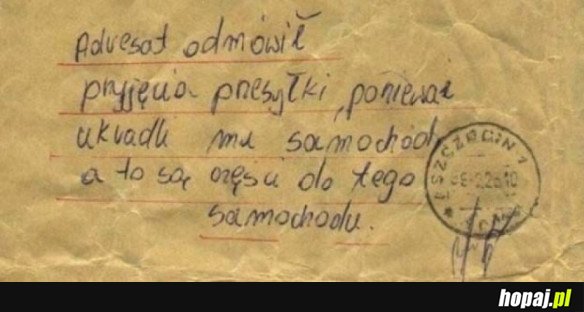 Adresat odmówił
przyjęcia przesyłki, ponieważ
ukradli mu samochód,
a to są części do tego
samochodu.
SZCZECIN 1
hopaj.pl